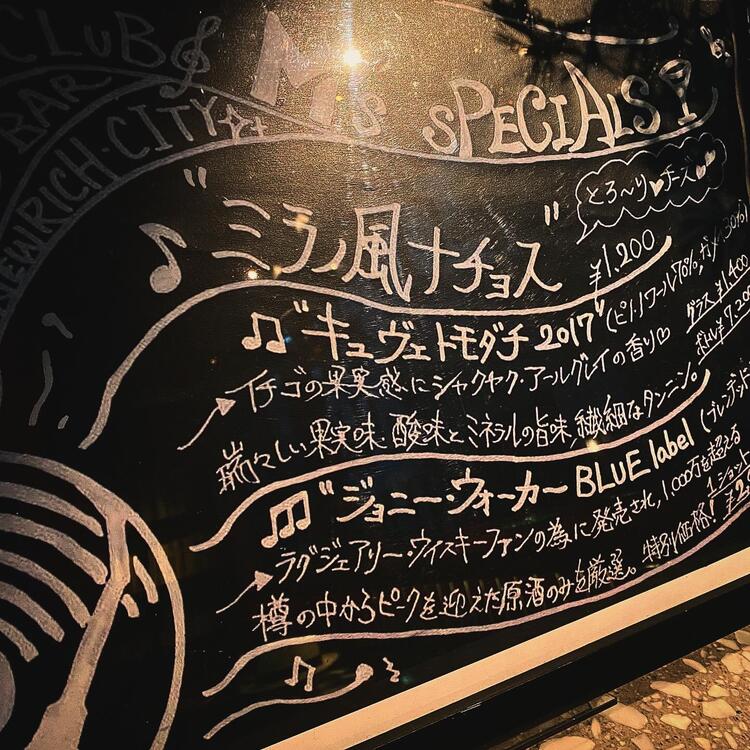 CLUB
BAR
NEWRICH・CITY
M's SPECIALS!
"ミラノ風ナチョス"
とろ〜り♥チーズ♥♥
¥1,200
"キュヴェトモダチ 2017"(ピノ・ノワール70%,ガメイ30%)
グラス¥1,400
→イチゴの果実感にシャクヤク・アールグレイの香り♡
ボトル¥7,200
瑞々しい果実味、酸味とミネラルの旨味、繊細なタンニン。
"ジョニー・ウォーカー BLUE label (ブレンデッド
→ラグジュアリー・ウイスキーファンの為に発売され,1,000万を超える
1ショット
樽の中からピークを迎えた原酒のみを厳選。特別価格!